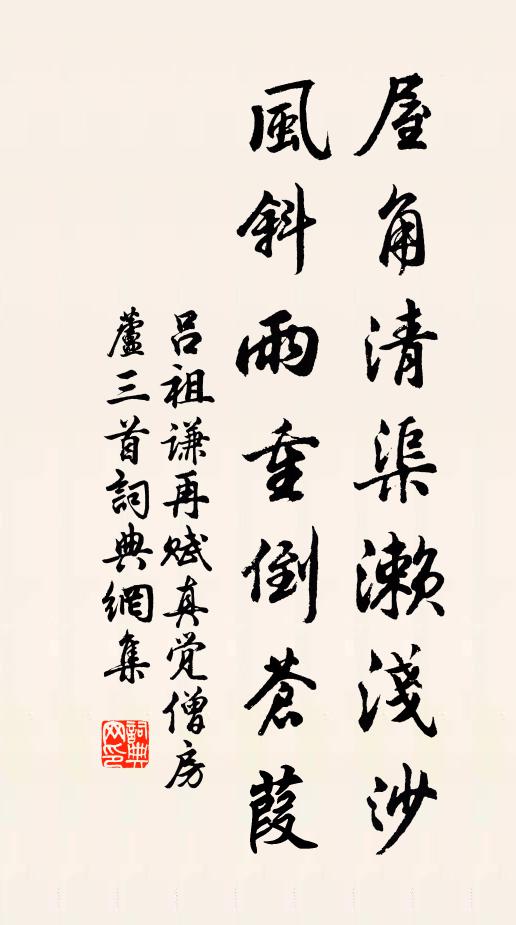 屋角清渠濑淺沙
風斜雨重倒蒼葭
吕祖谦再赋真觉僧房
蘆三首詞典網集
詞典网印